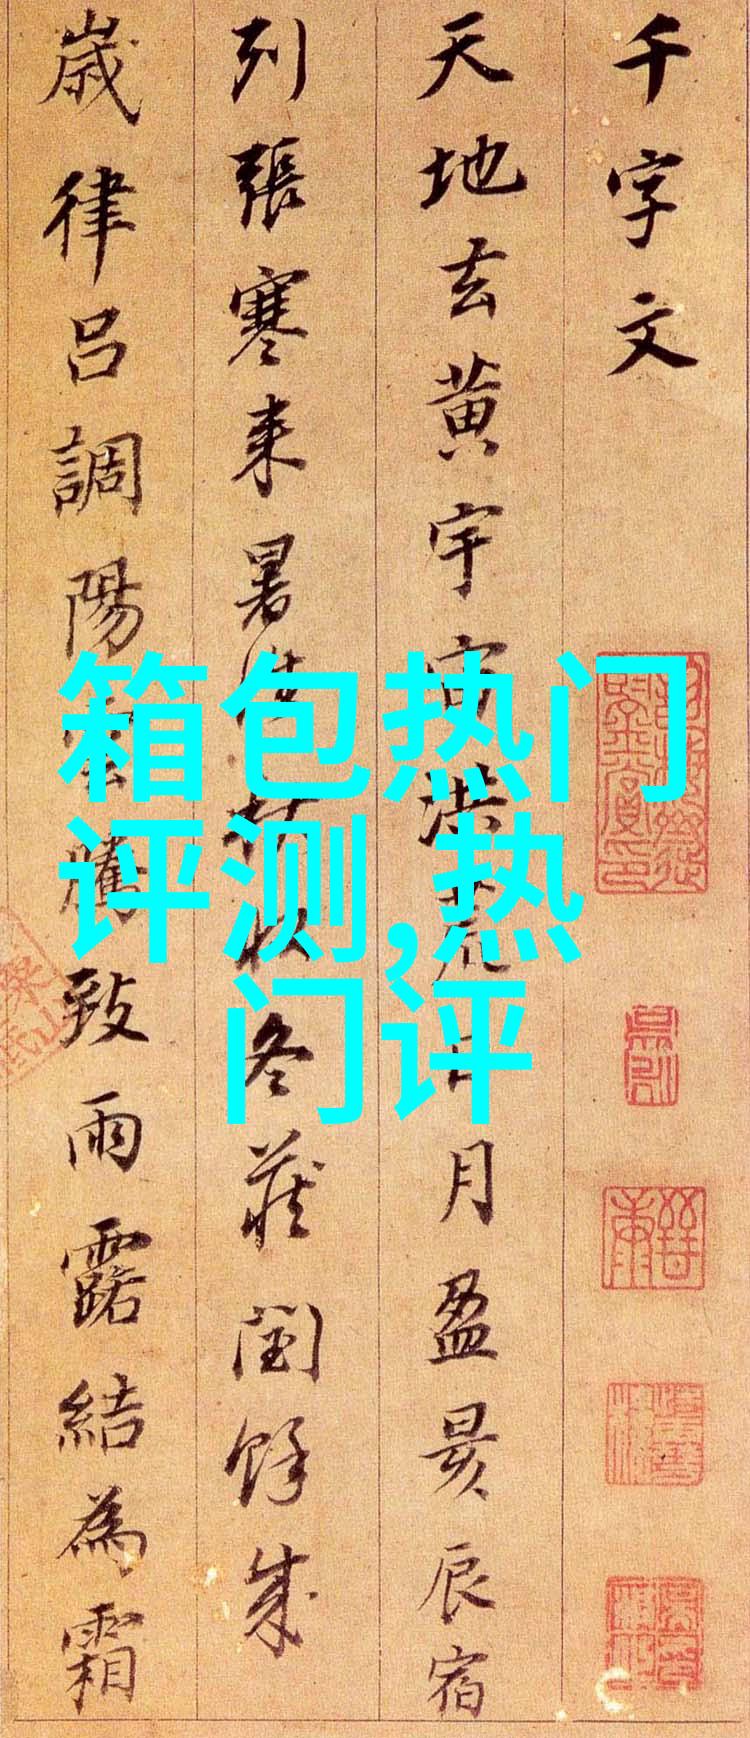 千字文
天地玄黄宇宙洪荒日月盈昃辰宿
列張寒来暑往秋收冬蔵閏餘成
歲律吕調陽雲騰致雨露結為霜
箱包热门
评测,热
门评